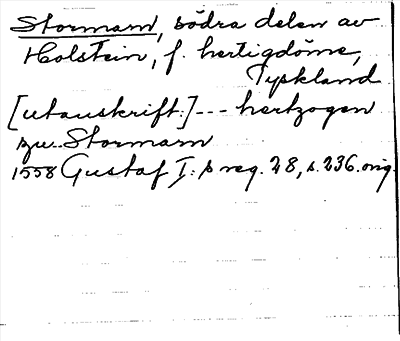 Stormarn, södra delen av
Holstein, f. hertigdöme,
Tyskland
[utanskrift:] --- hertzogen
zu.. Stormarn
1558 Gustaf I:s reg. 28, s. 236. orig.